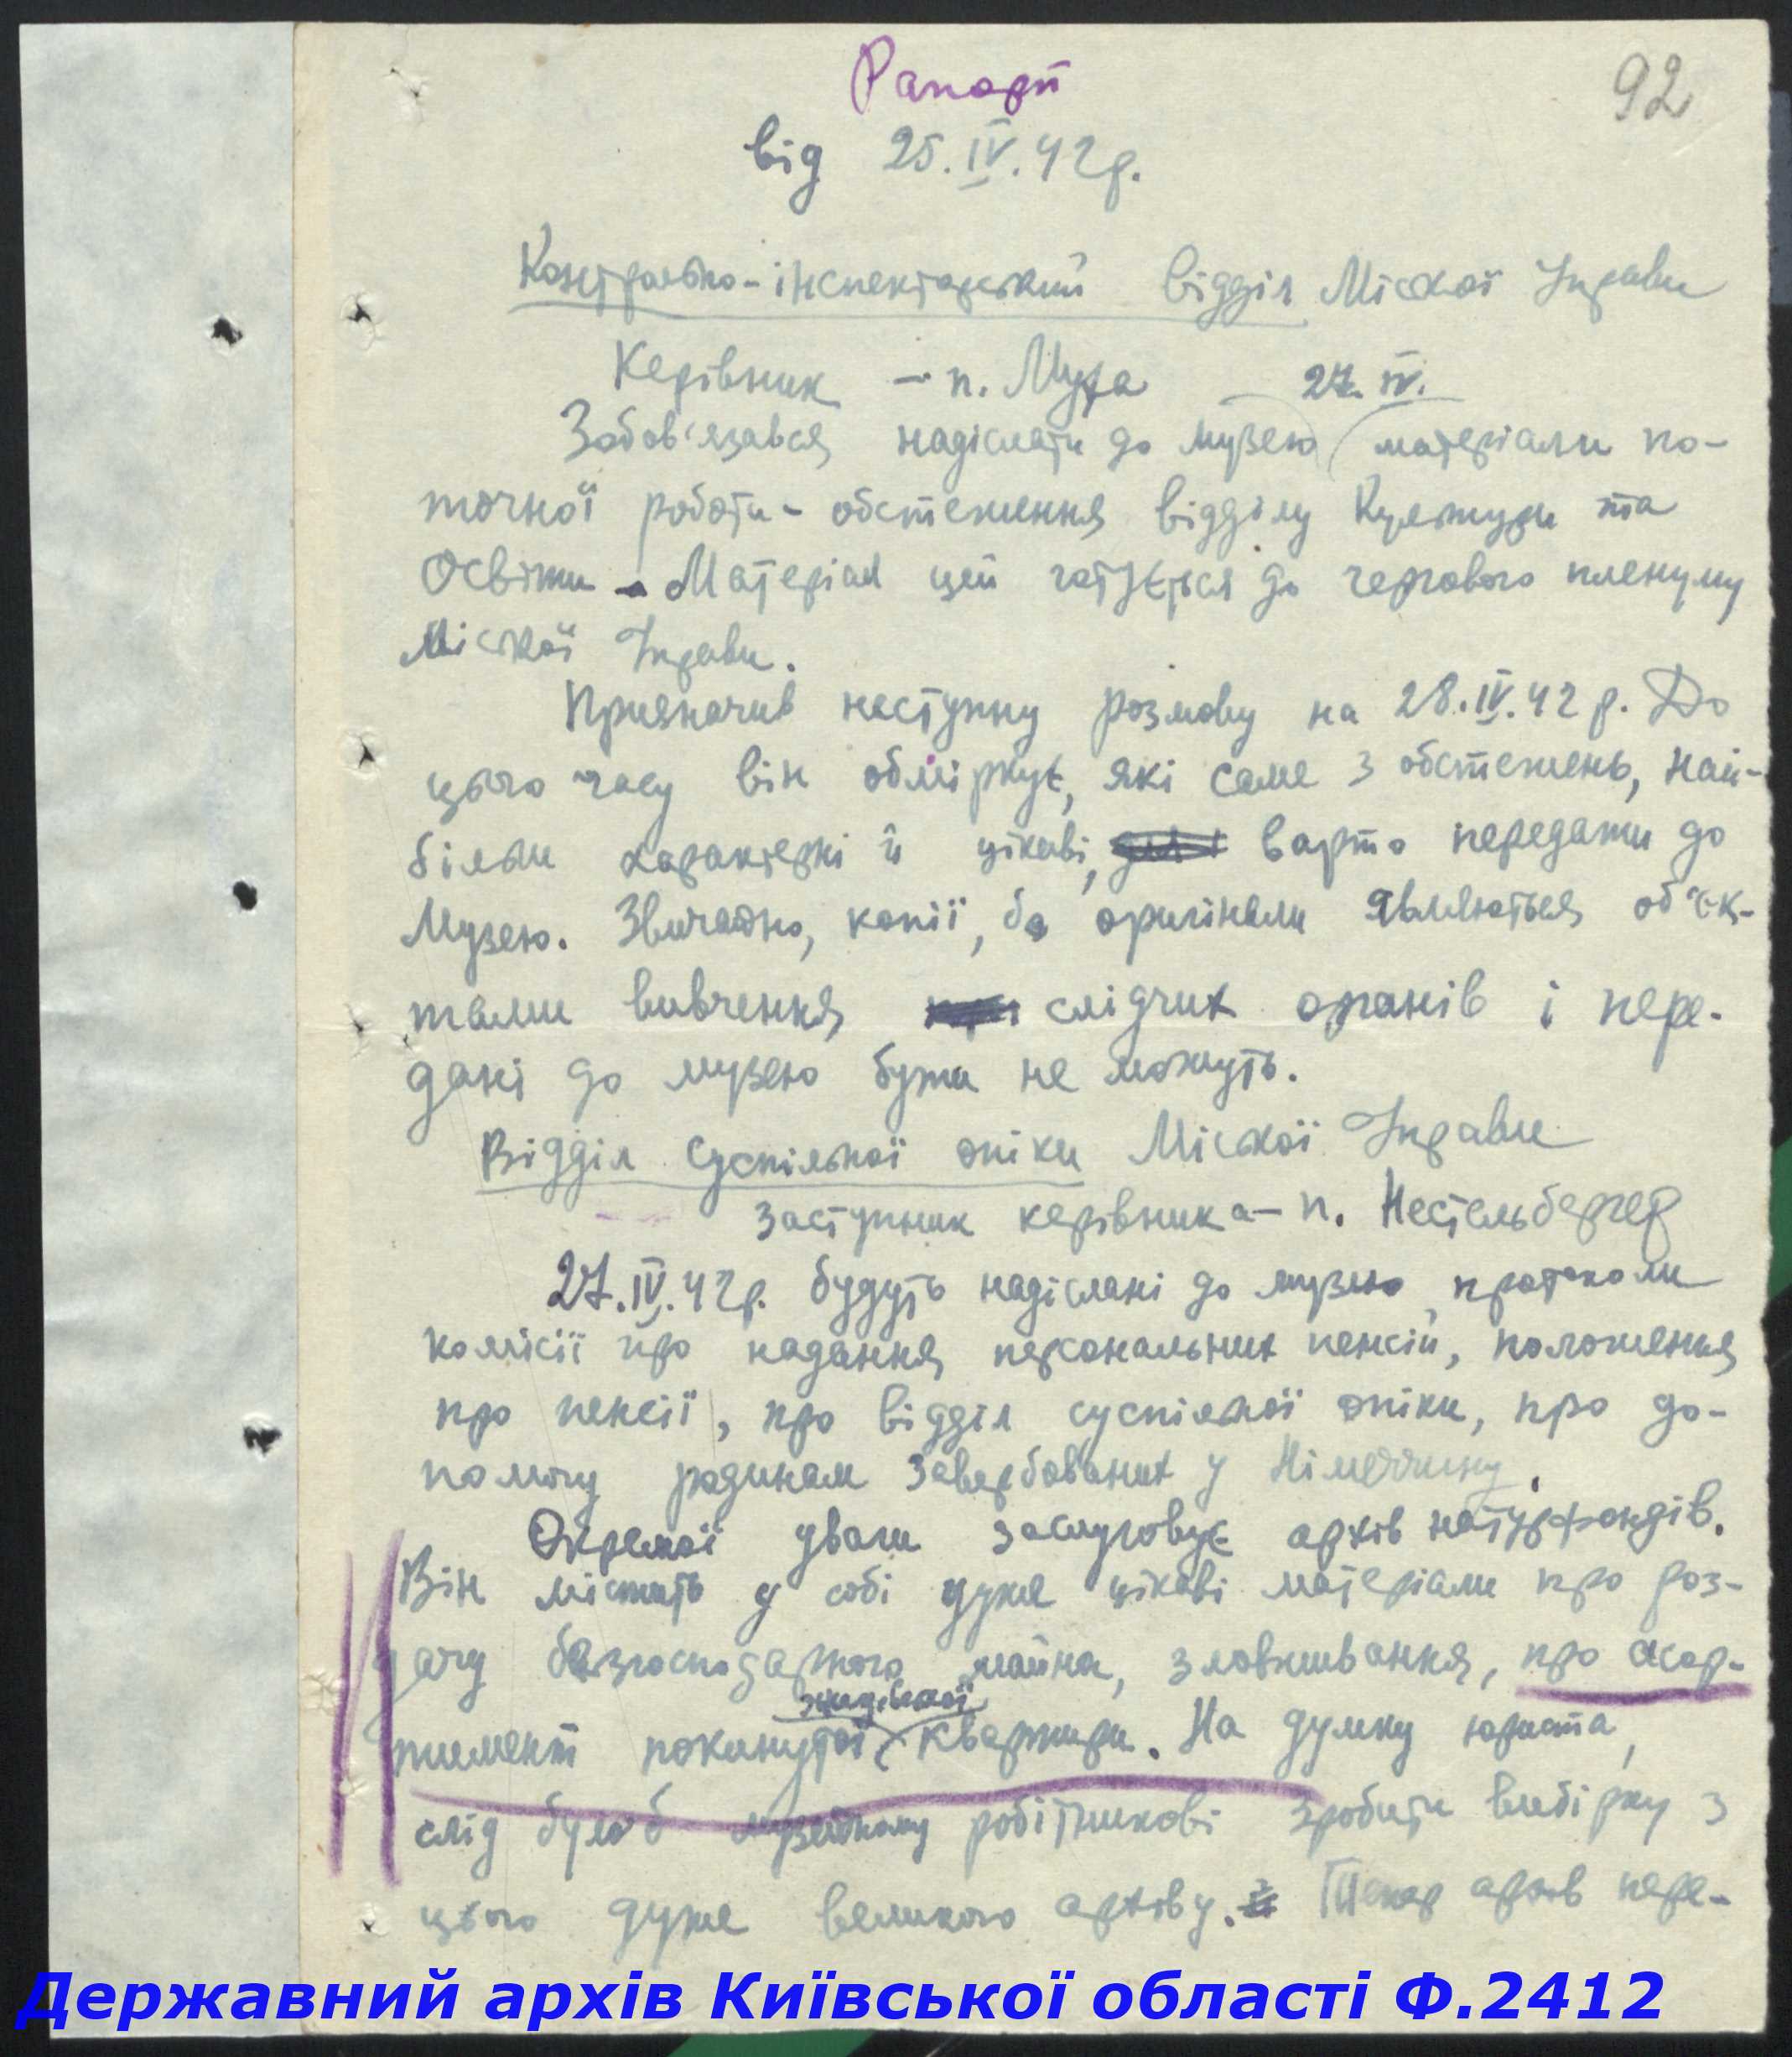 Рапорт
92
від 25.IV.42р.
Контрольно-інспекторський відділ Міської Управи
Керівник — п. Муха 27.IV.
Зобов'язався надіслати до музею матеріали по-
точної роботи - обстеження відділу Культури та
Освіти. Матеріал цей готується до чергового пленуму
Міської Управи.
Призначив наступну розмову на 28.IV.42 р. До
цього часу він обміркує, які саме з обстежень, най-
більш характерні й цікаві, варто передати до
Музею. Звичайно, копії, бо оригінали являються об'єк-
тами вивчення слідчих органів і пере-
дані до музею бути не можуть.
Відділ суспільної опіки Міської Управи
Заступник керівника — п. Нестельбергер
27.IV.42р. будуть надіслані до музею протоколи
комісії про надання персональних пенсій, положення
про пенсії, про відділ суспільної опіки, про до-
помогу родинам завербованих у Німеччину.
Окремої уваги заслуговує архів натурфондів.
Він містить у собі дуже цікаві матеріали про роз-
дачу безгосподарного майна, зловживання, про асор-
жидівської
тимент покинутої квартири. На думку юриста,
слід було б музейному робітникові зробити вибірку з
цього дуже великого архіву. Тепер архів пере-
Державний архів Київської області Ф.2412